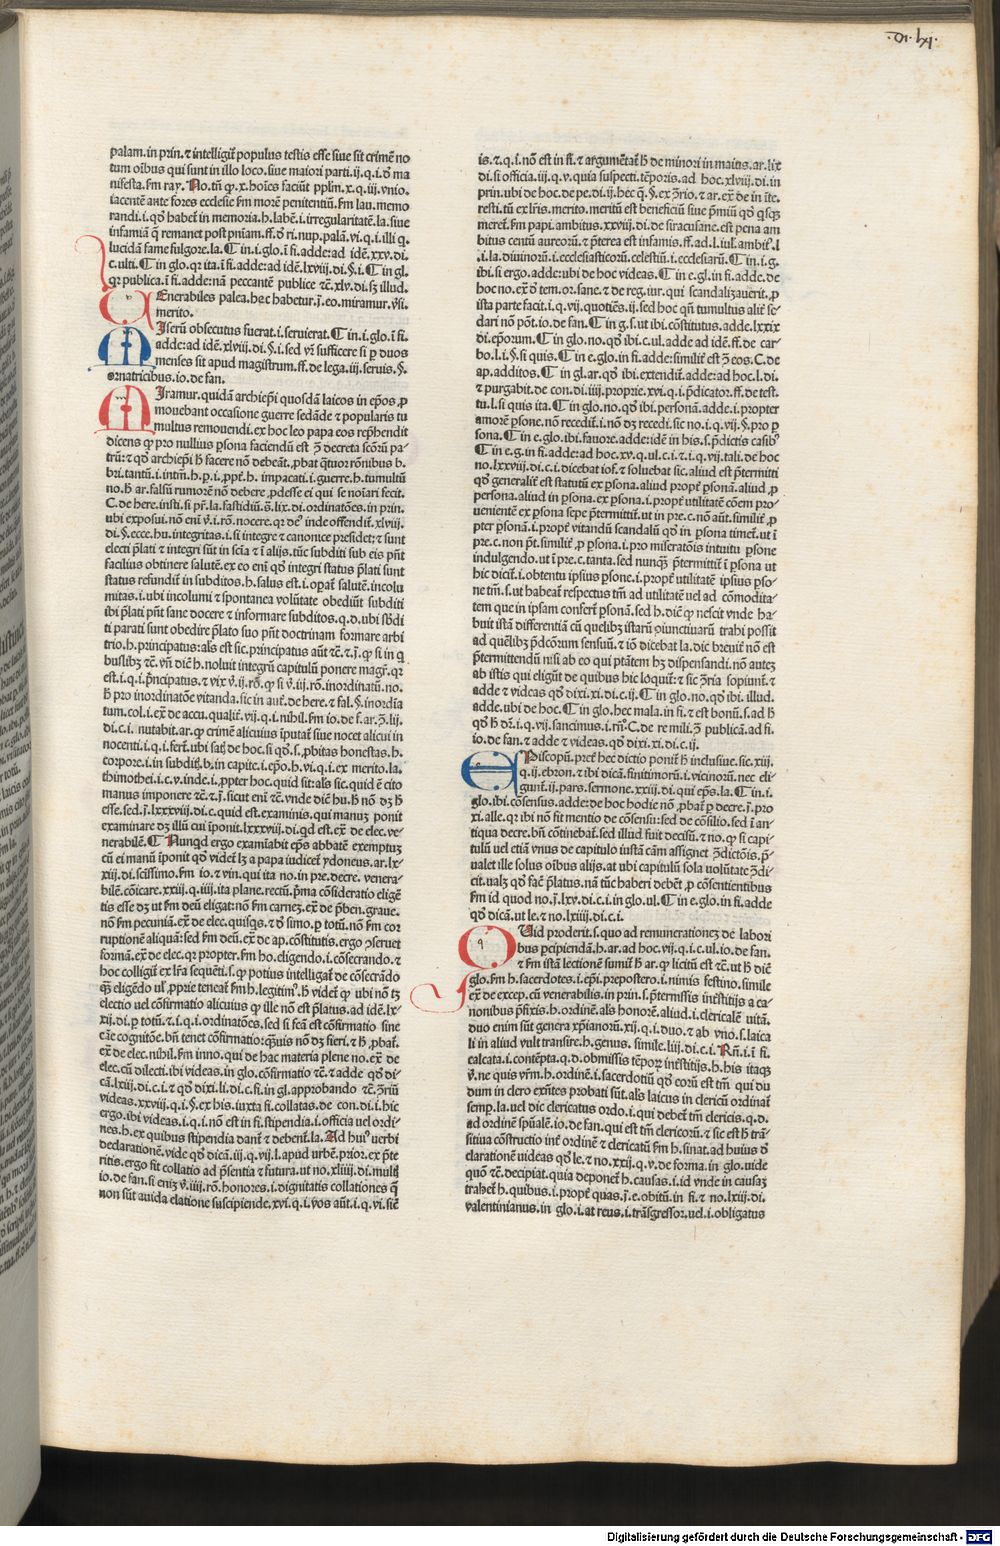 .di.lxi.
palam.in prin.⁊ intelligit̄ populus testis esse siue sit crimē no
tum oībus qui sunt in illo loco.siue maiori parti.ij.q.i.ō ma
nifesta.ẜm ray. No.tn̄ ꝙ.x.hoīes faciūt pplm.x.q.iij.vnio.
iacentē ante fores ecclesie ẜm morē penitentiū.ẜm lau.memo
randi.i.qď habet̄ in memoria.h.labē.i.irregularitatē.la.siue
infamiā q̄ remanet post pniam.ff.ď ri.nup.palā.vi.q.i.illi q.
lucidā fame fulgore.la. ¶ in.i.glo.ī fi.adde:ad idē.xxv.di.
c.vlti. ¶ in glo.qr ita.ī fi.adde:ad idē.lxviii.di.§.i. ¶ in gl.
qr publica.ī fi.adde:nā peccantē publice ⁊c̄.xlv.di.sꝫ illud.
Enerabiles palea.hec habetur.j̄.eo.miramur.v̄si.
merito.
Iserū obsecutus fuerat.i.seruierat. ¶ in.i.glo.i fi.
adde:ad idē.xlviij.di.§.i.sed vr̄ sufficere si ꝑ duos
menses sit apud magistrum.ff.de lega.iij.seruis.§.
ornatricibus.io.de fan.
Iramur.quidā archiepī quosdā laicos in epōs ꝓ
mouebant occasione guerre sedāde ⁊ popularis tu
multus remouendi.ex hoc leo papa eos repͬhendit
dicens ꝙ pro nullius ꝑsona faciendū est ꝯ̄ decreta scōrū pa⸗
trū:⁊ qď archiepī ħ facere nō debeāt.ꝓbat qͣtuor rōnibus h.
bri.tantū.i.intm̄.h.ꝑ.i.ꝓpt̄.h. impacati.i.guerre.h.tumultū
no.ħ ar.falsū rumorē nō debere ꝓdesse ei qui se noīari fecit.
C.de here.insti.si pr̄.la.fastidiū.s̄.lix.di.ordinatōes.in prin.
ubi exposui.nō enī v̄.i.rō.nocere.qr de⁹ inde offendit̄.xlviij.
di.§.ecce.hu.integritas.i.si integre ⁊ canonice presidet;⁊ sunt
electi p̄lati ⁊ integri sūt in scīa ⁊ ī alijs.tūc subditi sub eis pn̄t
facilius obtinere salutē.ex eo enī qď integri status p̄lati sunt
status refundit̄ in subditos.h.salus est.i.oꝑat̄ salutē.incolu
mitas.i.ubi incolumi ⁊ spontanea volūtate obediūt subditi
ibi p̄lati pn̄t sane docere ⁊ informare subditos.q.d.ubi sb̄di
ti parati sunt obedire p̄lato suo pn̄t doctrinam formare arbi
trio.h.principatus:als̄ est sic.principatus aūt ⁊c̄.⁊.j̄.ꝙ si in q
buslibꝫ ⁊c̄.vn̄ dicē h.noluit integrū capitulū ponere magr̄.qr
est.i.q.i.p̄ncipatus.⁊ vix v̄.ij.rō.ꝙ si v̄.iij.rō.inordinatū.no.
ħ pro inordinatōe vitanda.sic in aut̄.de here.⁊ fal.§.inordīa
tum.col.i.ex̄ de accu.qualit̄.vij.q.i.nihil.ẜm io.de f.ar.ꝯ̄.lij.
di.c.i. nutabit.ar.ꝙ crimē alicuius īputat̄ siue nocet alicui in
nocenti.i.q.i.fert̄.ubi satꝭ de hoc.si qď.s.ꝓbitas honestas.h.
corpore.i.in subditꝭ.h.in capite.i.epō.h.vi.q.i.ex merito.la.
thimothei.i.c.v.inde.i.ꝓpter hoc.quid sit:als̄ sic.quid ē cito
manus imponere ⁊c̄.⁊.j̄.sicut enī ⁊c̄.vnde dic̄ hu.ħ nō dꝫ ħ
esse.sed.j̄.lxxxviij.di.c.quid est.examinis.qui manuꝫ ponit
examinare dꝫ illū cui īponit.lxxxviij.di.qd est.ex̄ de elec.ve⸗
nerabilē. ¶ Nunqd ergo examīabit ep̄s abbatē exemptuꝫ
cū ei manū īponit qď videt̄ lꝫ a papa iudicet̄ ydoneus.ar.lx⸗
xiij.di.scissimo.ẜm io.⁊ vin.qui ita no.in pre.decre. venera⸗
bilē.cōicare.xxiij.q.iiij.ita plane.rectū.p̄ma cōsideratio eligē
tis esse dꝫ ut ẜm deū eligat:nō ẜm carneꝫ.ex̄ de p̄ben.graue.
nō ẜm pecuniā.ex̄ de elec.quisqs.⁊ ď simo.ꝑ totū.nō ẜm cor
ruptionē aliquā:sed ẜm deū.ex̄ de ap.cōstitutis.ergo ꝓseruet
formā.ex̄ de elec.qr propter.ẜm ho.eligendo.i.cōsecrando.⁊
hoc colligit̄ ex lr̄a sequēti.s.ꝙ potius intelligat̄ de cōsecrādo
qꝫ eligēdo ul̄.ꝓprie teneat̄ ẜm h.legitim⁹.h videt̄ ꝙ ubi nō tꝫ
electio uel cōfirmatio alicuius ꝙ ille nō est p̄latus.ad idē.lx⸗
xij.di.ꝑ totū.⁊.i.q.i.ordinatōes.sed si fcā est cōfirmatio sine
cāe cognitōe.bn̄ tenet cōfirmatio:qꝫuis nō dꝫ fieri.⁊ ħ ꝓbat̄.
ex̄ de elec.nihil.ẜm inno.qui de hac materia plene no.ex̄ de
elec.cū dilecti.ibi videas.in glo.cōfirmatio ⁊c̄.⁊ adde qď di⸗
cā.lxiij.di.c.i.⁊ qď dixi.li.di.c.si.in gl.approbando ⁊c̄.ꝯ̄riū
videas.xxviij.q.i.§.ex his.iuxta fi.collatas.de con.di.i.hic
ergo.ibi videas.i.q.i.nō est in fi.stipendia.i.officia uel ordi⸗
nes.h.ex quibus stipendia dant̄ ⁊ debent̄.la. Ad hui⁹ verbi
declarationē.vide qď dicā.iij.q.vij.l.apud urbē.prior.ex p̄te
ritis.ergo fit collatio ad p̄sentia ⁊ futura.ut no.xliiij.di.multꝭ
io.de fan.si enīꝫ v̄.iiij.rō.honores.i.dignitatis collationes q̄
non sūt auida elatione suscipiende.xvi.q.i.vos aūt.i.q.vi.siē
is.⁊.q.i.nō est in fi.⁊ argumētat̄ ħ de minori in maius.ar.lix
di.si officia.iij.q.v.quia suspecti.tēporis.ad hoc.xlviij.di.in
prin.ubi de hoc.de pe.di.ij.hec q̄.§.ex ꝯ̄rio.⁊ ar.ex̄ de in īte.
resti.tū ex lr̄is.merito.meritū est beneficiū siue p̄miū qď qsqꝫ
meret̄.ẜm papi.ambitus.xxviij.di.de siracusane.est pena am
bitus centū aureorū.⁊ p̄terea est infamis.ff.ad.l.iul̄.ambit̄.l
.i.la.diuinorū.i.ecclesiasticorū.celestiū.i.ecclesiarū. ¶ in.i.g.
ibi.si ergo.adde:ubi de hoc videas. ¶ in e.gl.in fi.adde.de
hoc no.ex̄ ď tem.or.sane.⁊ de reg.iur.qui scandalizauerit.ꝓ
ista parte facit.i.q.vij.quotiēs.ij.sed hoc qn̄ tumultus alit̄ se⸗
dari nō pōt.io.de fan. ¶ in g.s.ut ibi.cōstitutus.adde.lxxix
di.eporum. ¶ in glo.no.qď ibi.c.ul.adde ad idē.ff.de car⸗
bo.l.i.§.si quis. ¶ in e.glo.in fi.adde:similit̄ est ꝯ̄ eos.C.de
ap.additos. ¶ in gl.ar.qď ibi.extendit̄.adde:ad hoc.l.di.
⁊ purgabit̄.de con.di.iiij.proprie.xvi.q.i.p̄dicator.ff.de test.
tu.l.si quis ita. ¶ in glo.no.qď ibi.personā.adde.i.propter
amorē ꝑsone.nō recedit̄.i.nō dꝫ recedi.sic no.i.q.vij.§.pro ꝑ
sona. ¶ in e.glo.ibi.fauore.adde:idē in his.s.p̄dictis casibꝰ
¶ in e.g.in fi.adde:ad hoc.xv.q.ul.c.i.⁊.i.q.vij.tali.de hoc
no.lxxviij.di.c.i.dicebat iof.⁊ soluebat sic.aliud est p̄termitti
qď generalit̄ est statutū ex ꝑsona.aliud propt̄ ꝑsonā.aliud ꝓ
persona.aliud in ꝑsona.ex ꝑsona.i.propt̄ utilitatē cōem pro⸗
uenientē ex ꝑsona sepe p̄termittit̄.ut in pre.c.nō aūt.similit̄ ꝓ
pter ꝑsonā.i.propt̄ vitandū scandalū qď in ꝑsona timet̄.ut ī
pre.c.non pt̄.similit̄ ꝓ ꝑsona.i.pro miseratōis intuitu ꝑsone
indulgendo.ut ī pre.c.tanta.sed nunqꝫ p̄termittit̄ ī ꝑsona ut
hic dicit̄.i.obtentu ipsius ꝑsone.i.propt̄ utilitatē ipsius ꝑso⸗
ne tm̄.s.ut habeat̄ respectus tm̄ ad utilitatē uel ad cōmodita⸗
tem que in ipsam confert̄ ꝑsonā.sed h.dic̄ ꝙ nescit vnde ha⸗
buit istā differentiā cū quelibꝫ istarū ꝯiunctiuarū trahi possit
ad quēlibꝫ p̄dcōrum sensuū.⁊ iō dicebat la.dic breuit̄ nō est
p̄termittendū nisi ab eo qui ptātem hꝫ dispensandi.nō auteꝫ
ab istis qui eligūt de quibus hic loquit̄.⁊ sic ꝯ̄ria sopiunt̄.⁊
adde ⁊ videas qď dixi.xi.di.c.ij. ¶ in glo.no.qď ibi.illud.
adde.ubi de hoc. ¶ in glo.hec mala.in fi.⁊ est bonū.s.ad ħ
qď ħ dr̄.i.q.vij.sancimus.i.rn̄⁹.C.de re mili.ꝯ̄ publicā.ad fi.
io.de fan.⁊ adde ⁊ videas.qď dixi.xi.di.c.ij.
Piscopū.pret̄ hec dictio ponit̄ ħ inclusiue.sic.xiij.
q.ij.ebron.⁊ ibi dicā.finitimorū.i.vicinorū.nec eli⸗
gunt̄.ij.pars.sermone.xxiij.di.qui ep̄s.la. ¶ in.i.
glo.ibi.cōsensus.adde:de hoc hodie nō ꝓbat̄ ꝑ decre.j̄.pro
xi.alle.qr ibi nō fit mentio de cōsensu:sed de cōsilio.sed ī an⸗
tiqua decre.bn̄ cōtinebat̄.sed illud fuit decisū.⁊ no.ꝙ si capi⸗
tulū uel etiā vnus de capitulo iustā cām assignet ꝯ̄dictōis.p̄⸗
ualet ille solus oībus alijs.at ubi capitulū sola uolūtate ꝯ̄di⸗
cit.ualꝫ qď fac̄ p̄latus.nā tūc haberi debēt ꝓ cōsentientibus
ẜm id quod no.j̄.lxv.di.c.i.in glo.ul. ¶ in e.glo.in fi.adde
qď dicā.ut le.⁊ no.lxiij.di.c.i.
Uid proderit.s.quo ad remunerationeꝫ de labori
bus ꝑcipiendā.h.ar.ad hoc.vij.q.i.c.ul.io.de fan.
⁊ ẜm istā lectionē sumit̄ ħ ar.ꝙ licitū est ⁊c̄.ut ħ dic̄
glo.ẜm h.sacerdotes.i.epī.prepostero.i.nimis festino.simile
ex̄ de excep.cū venerabilis.in prin.s.p̄termissis inēstitijs a ca⸗
nonibus p̄fixis.h.ordinē.als̄ honorē.aliud.i.clericalē uitā.
duo enim sūt genera xp̄ianorū.xij.q.i.duo.⁊ ab vno.s.laica
li in aliud vult transire.h.genus.simile.liij.di.c.i. Rn̄.i.ī fi.
calcata.i.contēpta.q.d.obmissis tēporꝭ inēstitijs.h.his itaqꝫ
v̄.ne quis vr̄m.h.ordinē.i.sacerdotiū qď eorū est tm̄ qui du
dum in clero exn̄tes probati sūt.als̄ laicus in clericū ordinat̄
semp.la.uel dic clericatus ordo.i.qui debet̄ tm̄ clericis.q.d.
ad ordinē spūalē.io.de fan.qui est tm̄ clericorū.⁊ sic est ħ trā⸗
sitiua cōstructio int̄ ordinē ⁊ clericatū ẜm h.sinat.ad huius ď
clarationē uideas qď le.⁊ no.xxij.q.v.de forma.in glo.uide
quō ⁊c̄.decipiat.quia deponet̄.h.causas.i.id vnde in causaꝫ
trahet̄.h.quibus.i.propt̄ quas.j̄.e.obitū.in fi.⁊ no.lxiij.di.
valentinianus.in glo.i.at reus.i.trāsgressor.uel.i.obligatus
Digitalisierung gefördert durch die Deutsche Forschungsgemeinschaft - DFG